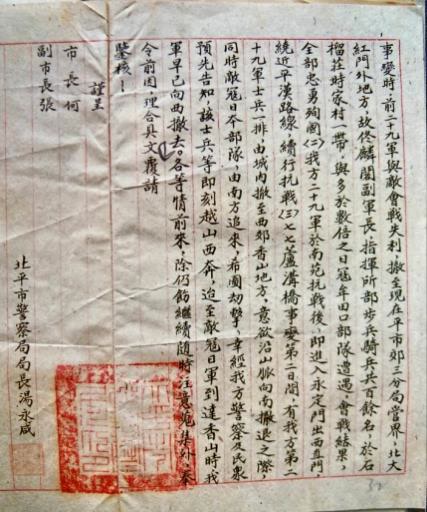 事變時，前二十九軍與敵會戰失利，撤至現在平市郊三分局管界，北大
紅門外地方，故佟麟閣副軍長，指揮所部步兵騎兵共百餘名，於石
榴莊時家村一帶，與多於數倍之日寇牟田口部隊遭遇，會戰結果，
全部忠勇殉國㈡我方二十九軍於南苑抗戰後，即進入永定門出西直門，
繞近平漢路線，續行抗戰㈢七七蘆溝橋事變第二日間，有我方第二
十九軍士兵一排，由城內撤至西郊香山地方，意欲沿山脈向南撤退之際，
同時敵寇日本部隊，由南方追來，希圖刧擊，幸經我方警察及民衆
預先告知，該士兵等即刻越山西奔，迨至敵寇日軍到達香山時，我
軍早已向西撤去。各等情前來，除仍飭繼續隨時注意蒐集外，奉
令前因，理合具文覆請
鑒核！
謹呈
市長何
副市長張
北平市警察局局長湯永咸